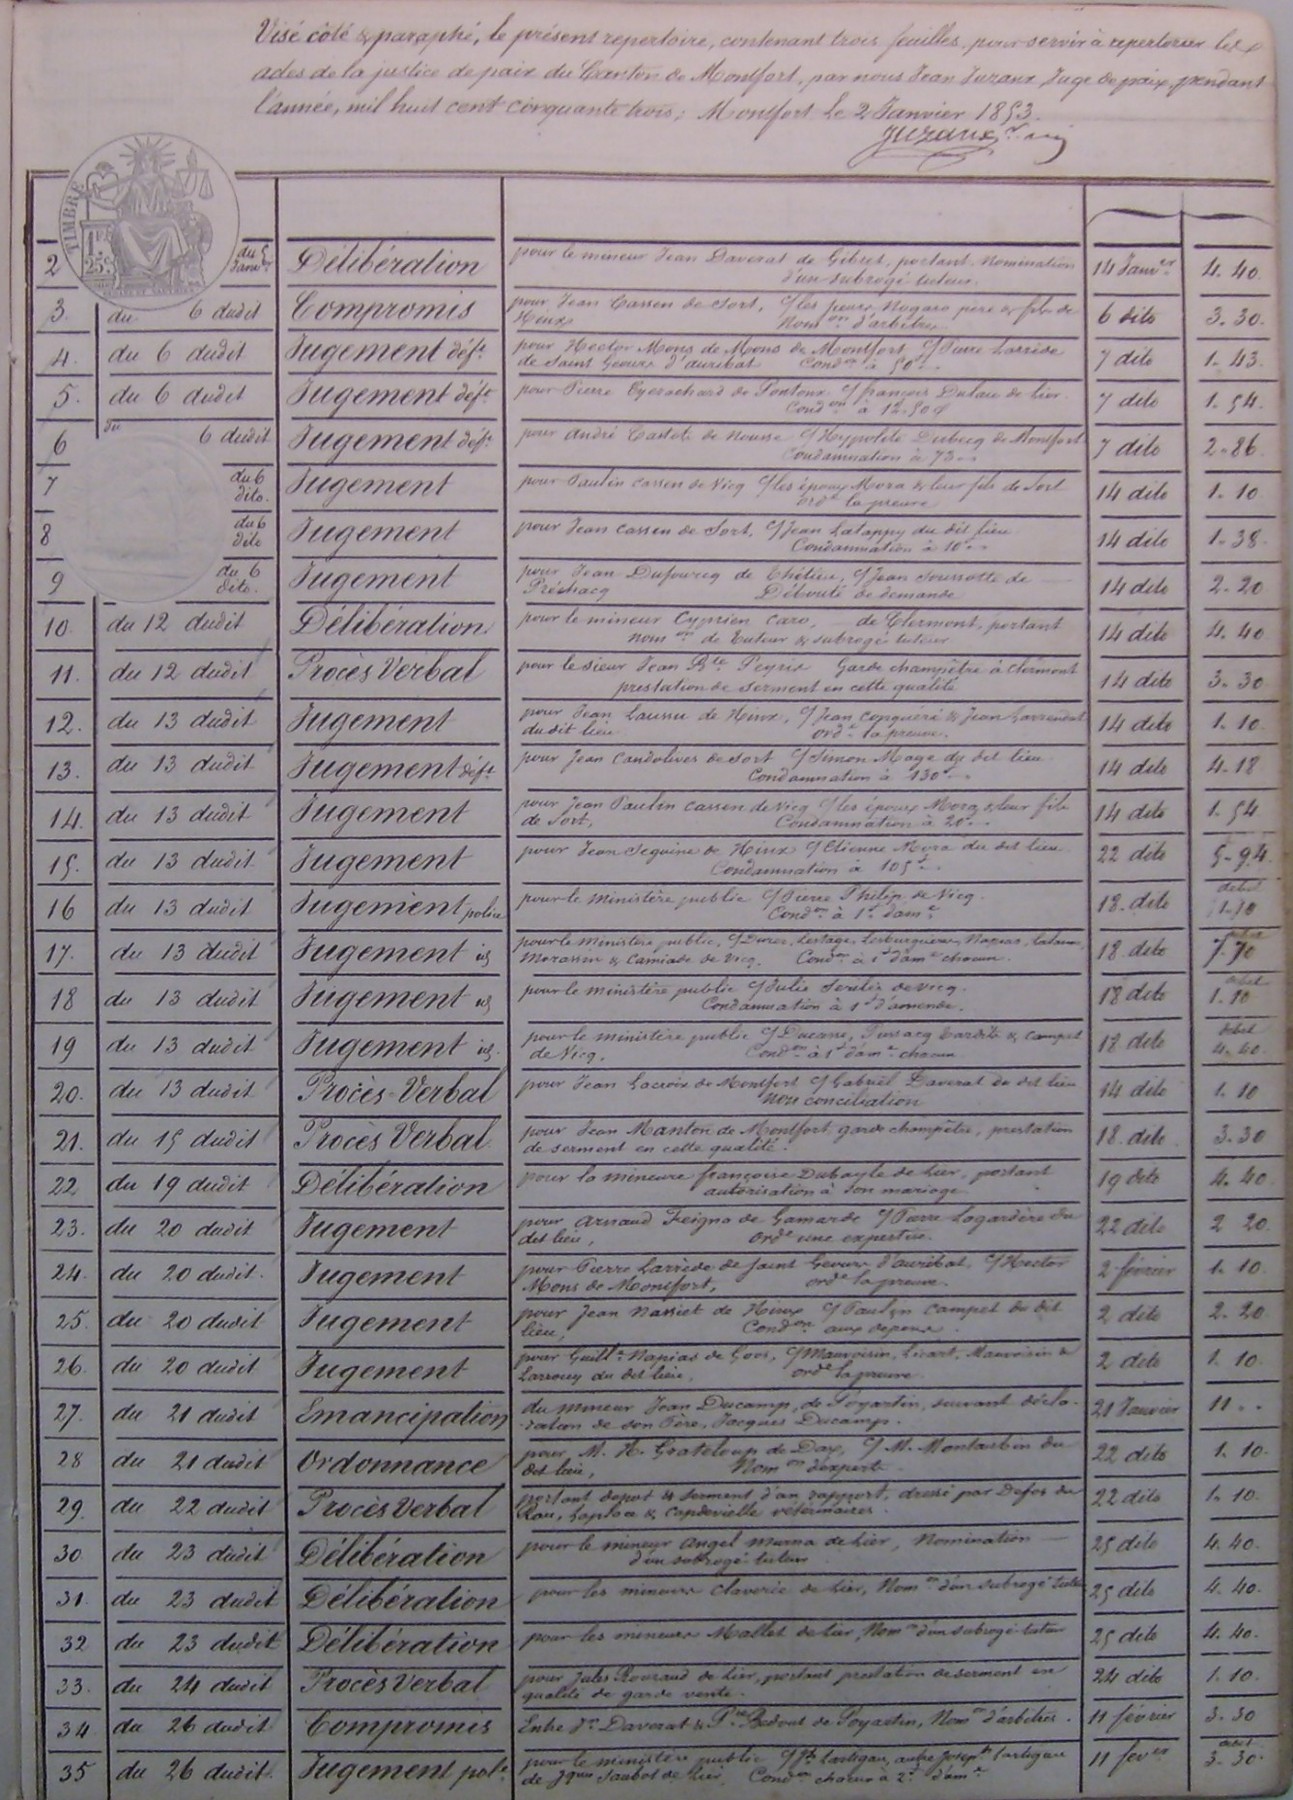 Visé côté & paraphé, le présent repertoire, contenant trois feuilles, pour servir à repertorier les
actes de la justice de paix du Canton de Montfort, par nous Jean Juzaux, Juge de paix, pendant
l'année, mil huit cent cinquante trois; Montfort le 2 Janvier 1853.
Juzaux
TIMBRE
1 FR
25 C
2 du 5 Janv.er Délibération pour le mineur Jean Daverat de Gibret, portant nomination d'un subrogé tuteur. 14 Janv.er 4.40
3. du 6 dudit Compromis pour Jean Cassen de Sort, C/ les sieurs Nogaro père & fils de Hinx Nom.on d'arbitres 6 dito 3.30.
4. du 6 dudit Jugement déf.t pour Hector Mons de Mons de Montfort C/ Pierre Larrède de Saint Geours d'auribat Cond.on à 50 7 dito 1.43.
5. du 6 dudit Jugement déf.t pour Pierre de Pontonx C/ françois Dulau de lier. Cond.on à 12.50 7 dito 1.54.
6 du 6 dudit Jugement déf.t pour André de nousse C/ Hypolite Dubecq de Montfort Condamnation à 73 7 dito 2.86
7 du 6 dito. Jugement pour Paulin Cassen de Vicq C/ les époux Mora & leur fils de Sort ord.e la preuve 14 dito 1.10
8 du 6 dito Jugement pour Jean Cassen de Sort, C/ Jean Latappy du dit lieu Condamnation à 10 14 dito 1.38.
9 du 6 dito. Jugement pour Jean Dufourcq de Thétieu, C/ Jean Soussotte de Préchacq Débouté de demande 14 dito 2.20
10. du 12 dudit Délibération pour le mineur Cyprien Caro, de Clermont, portant nom.on de tuteur & subrogé tuteur 14 dito 4.40
11. du 12 dudit Procès Verbal pour le sieur Jean B.te Peyris Garde champêtre à Clermont prestation de serment en cette qualité 14 dito 3.30
12. du 13 dudit Jugement pour Jean de Hinx, C/ Jean & Jean dudit lieu ord.e la preuve. 14 dito 1.10
13. du 13 dudit Jugement déf.t pour Jean Candolives de Sort C/ Simon Mage du dit lieu. Condamnation à 130 14 dito 4.18
14. du 13 dudit Jugement pour Jean Paulin Cassen de Vicq C/ les époux Mora & leur fils de Sort, Condamnation à 20 14 dito 1.54
15. du 13 dudit Jugement pour Jean Seguine de Hinx C/ Etienne Mora du dit lieu. Condamnation à 105 22 dito 5.94
16 du 13 dudit Jugement police pour le Ministère public C/ Pierre Philip de Vicq. Cond.on à 1 d'am.e 18 dito debet 1.10
17. du 13 dudit Jugement id pour le Ministère public, C/ Lestage, Napias, & Camiade de Vicq. Cond.on à 1 d'am.e chacun. 18 dito 7.70
18 du 13 dudit Jugement id pour le ministère public C/ Julie de Vicq. Condamnation à 1 d'amende. 18 dito debet 1.10
19 du 13 dudit Jugement id. pour le ministère public C/ Ducasse, & Campet de Vicq. Cond.on à 1 d'am.e chacun 18 dito debet 4.40.
20. du 13 dudit Procès-Verbal pour Jean Lacroix de Montfort C/ Gabriel Daverat du dit lieu Non conciliation 14 dito 1.10
21. du 15 dudit Procès Verbal pour Jean Manton de Montfort, garde champêtre, prestation de serment en cette qualité. 18. dito 3.30
22 du 19 dudit Délibération pour la mineure françoise Dubayle de lier, portant autorisation à son mariage 19 dito 4.40.
23. du 20 dudit Jugement pour Arnaud Feigna de Gamarde C/ Pierre Lagardère du dit lieu, ord.e une expertise. 22 dito 2 20.
24. du 20 dudit. Jugement pour Pierre Larrède de Saint Geours d'auribat, C/ Hector Mons de Montfort, ord.e la preuve. 2 février 1.10.
25. du 20 dudit Jugement pour Jean Nassiet de Hinx C/ Paulin Campet du dit lieu, Cond.on aux depens. 2 dito 2.20
26. du 20 dudit Jugement pour Guill.e Napias de Goos, C/ Mauvoisin, Licart, Mauvoisin & du dit lieu, ord.e la preuve. 2 dito 1.10.
27. du 21 dudit Emancipation du mineur Jean Ducamp, de Poyartin, suivant décla-ration de son Père, Jacques Ducamp. 21 Janvier 11..
28 du 21 dudit Ordonnance pour M. H. Grateloup de Dax, C/ M. Montaubin du dit lieu, Nom.on d'experts 22 dito 1.10.
29. du 22 dudit Procès Verbal portant depot & serment d'un rapport, dressé par Defos du Rau, Laplace & Capdevielle vétérinaires. 22 dito 1.10.
30 du 23 dudit Délibération pour le mineur Angel de lier, Nomination d'un subrogé tuteur 25 dito 4.40.
31. du 23 dudit Délibération pour les mineurs Claverie de lier, Nom.on d'un subrogé tuteur 25 dito 4.40.
32 du 23 dudit Délibération pour les mineurs Mallet de lier, Nom.on d'un subrogé tuteur 25 dito 4.40.
33. du 24 dudit Procès Verbal pour Jules de lier, portant prestation de serment en qualité de garde vente. 24 dito 1.10.
34 du 26 dudit Compromis Entre J.n Daverat & P.re Bedout de Poyartin, Nom.on d'arbitres. 11 février 3.30
35 du 26 dudit. Jugement pol.e pour le ministère public C/ Lartigau, autre Joseph Lartigau & Saubot de lier, Cond.on chacun à 2 d'am.e 11 fév.er debet 3.30.